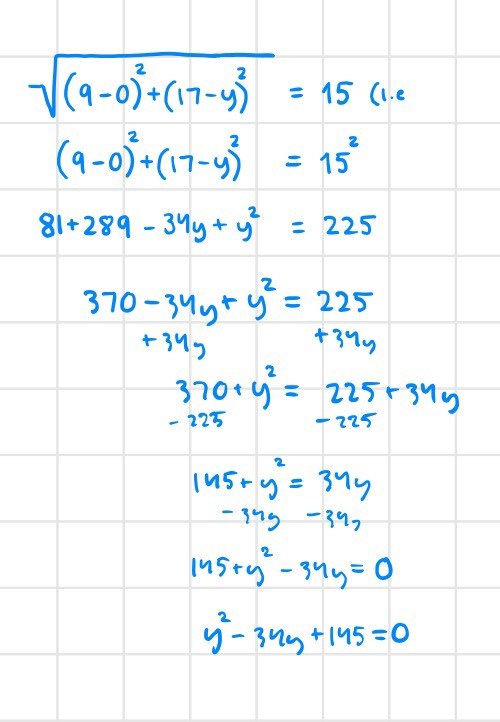 √((9-0)²+(17-y)²) = 15 (i.e
(9-0)²+(17-y)² = 15²
81+289 - 34y + y² = 225
370 - 34y + y² = 225
+34y +34y
370 + y² = 225 + 34y
- 225 - 225
145 + y² = 34y
- 34y - 34y
145 + y² - 34y = 0
y² - 34y + 145 = 0